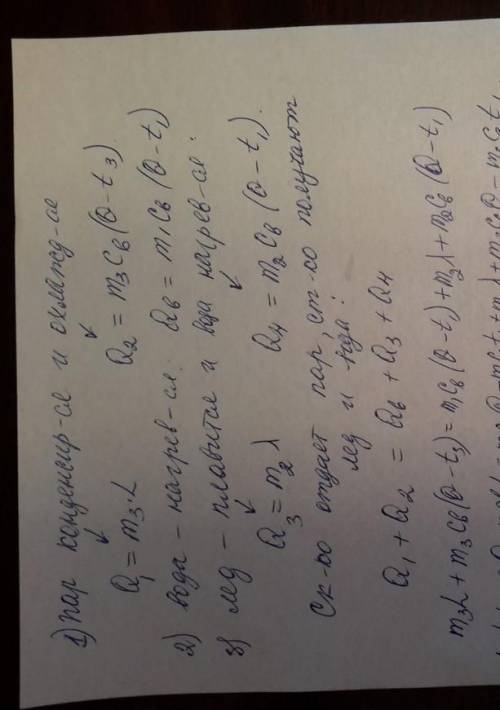 1) пар конденсир-ся и охлажд-ся
Q₁ = m₃·L   Q₂ = m₃cв(θ-t₃)
2) вода - нагрев-ся. Qв = m₁cв(θ-t₁)
3) лёд - плавится и вода нагрев-ся:
Q₃ = m₂λ   Q₄ = m₂cв(θ-t₁).
Ск-ко отдаёт пар, ст-ко получают
лёд и вода:
Q₁ + Q₂ = Qв + Q₃ + Q₄
m₃L + m₃cв(θ-t₃) = m₁cв(θ-t₁) + m₂λ + m₂cв(θ-t₁)